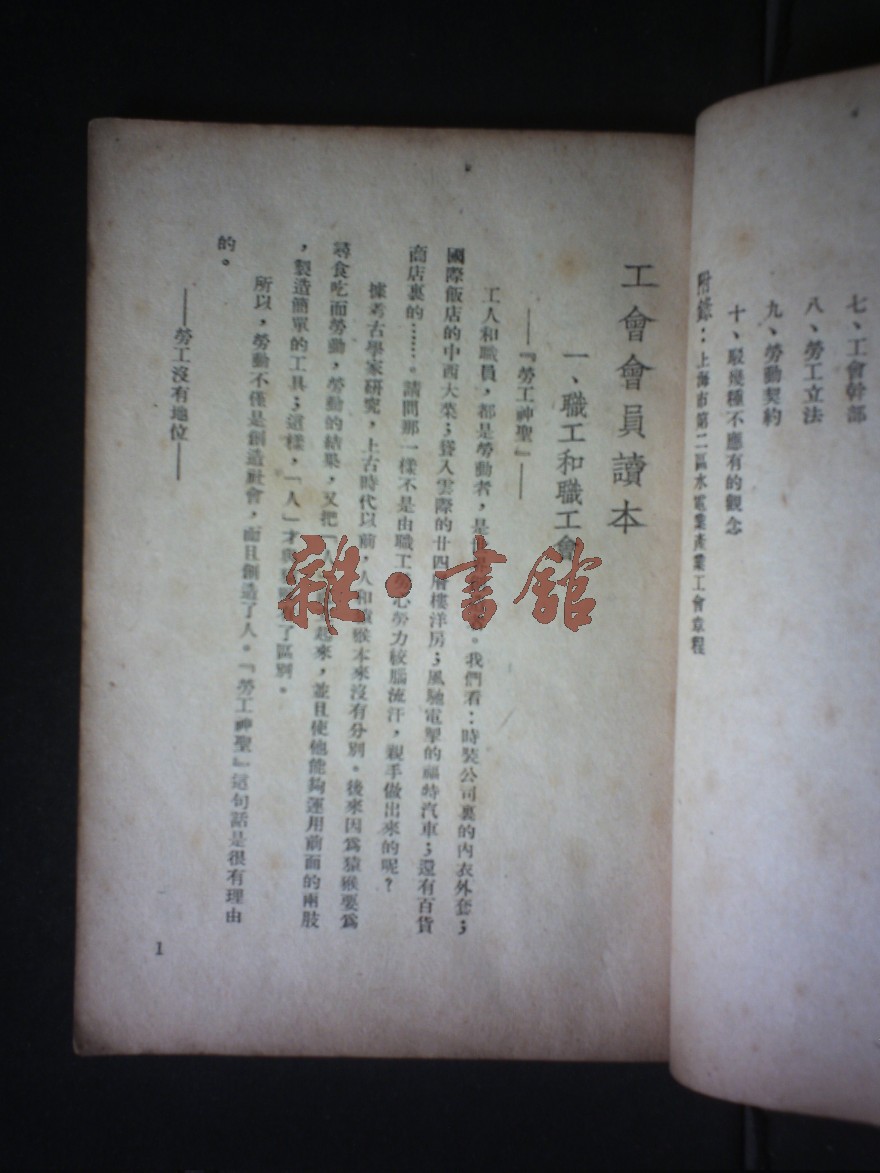 七、工會幹部
八、勞工立法
九、勞動契約
十、駁幾種不應有的觀念
附錄：上海市第二區水電業產業工會章程
工會會員讀本
一、職工和職工會
——『勞工神聖』——
工人和職員，都是勞動者，是
。我們看：時裝公司裏的內衣外套；
國際飯店的中西大菜；聳入雲際的廿四層樓洋房；風馳電掣的福特汽車；還有百貨
商店裏的……。請問那一樣不是由職工勞心勞力絞腦流汗，親手做出來的呢？
據考古學家研究，上古時代以前，人和猿猴本來沒有分別。後來因爲猿猴要爲
尋食吃而勞動，勞動的結果，又把「人
起來，並且使他能夠運用前面的兩肢
，製造簡單的工具；這樣，「人」才
了區別。
所以，勞動不僅是創造社會，而且創造了人。『勞工神聖』這句話是很有理由
的。
——勞工沒有地位——
1
雜·書館